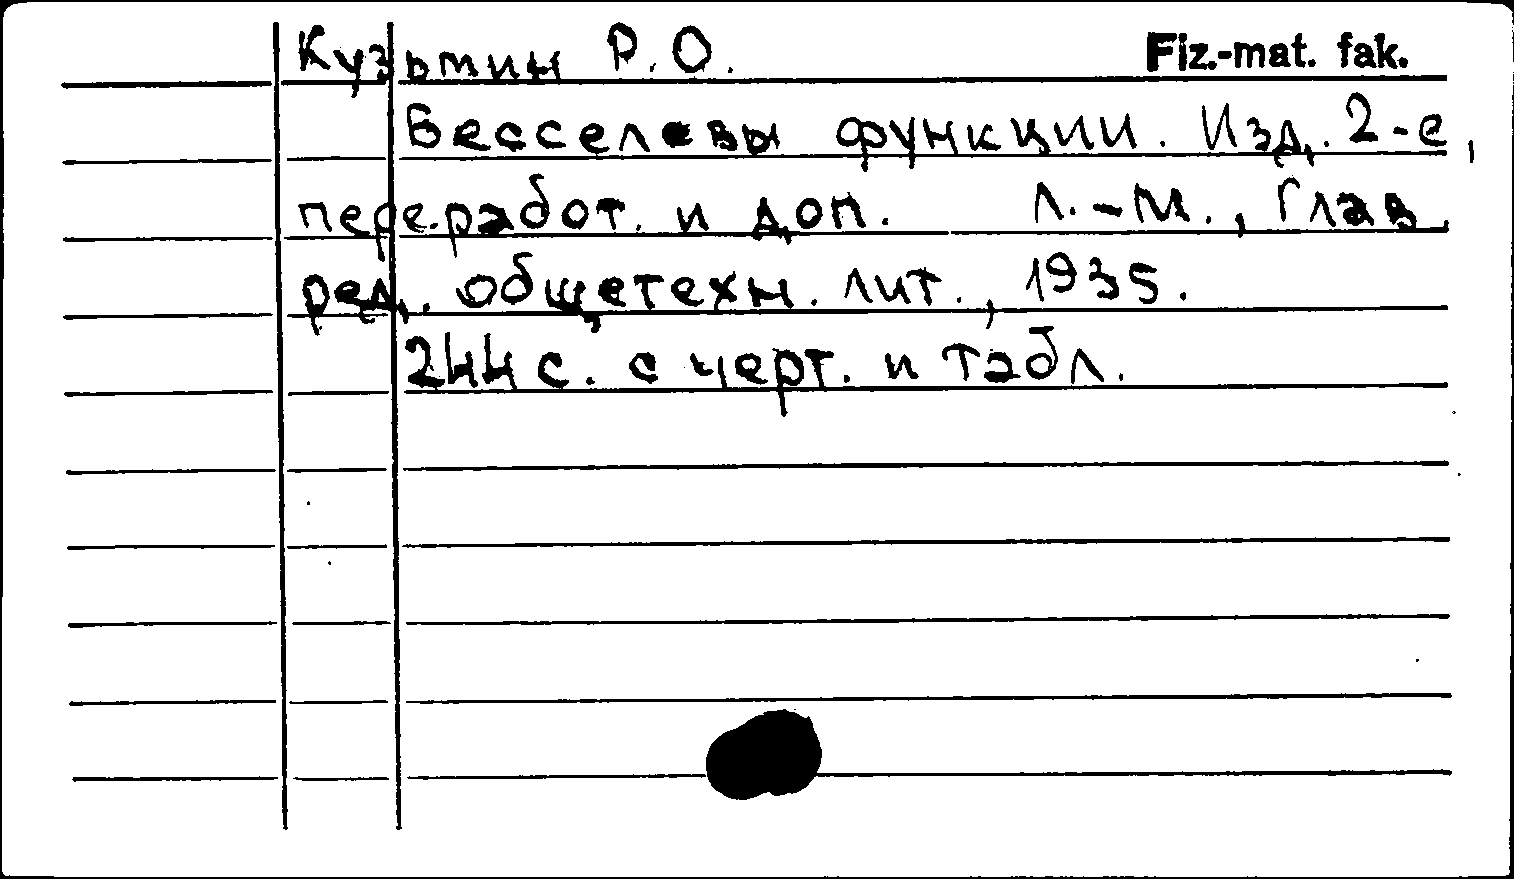 Кузьмин Р.О. Fiz.-mat. fak.
Бесселевы функции. Изд. 2-е,
переработ. и доп. Л.-М., Глав.
ред. общетехн. лит., 1935.
244 с. с черт. и табл.